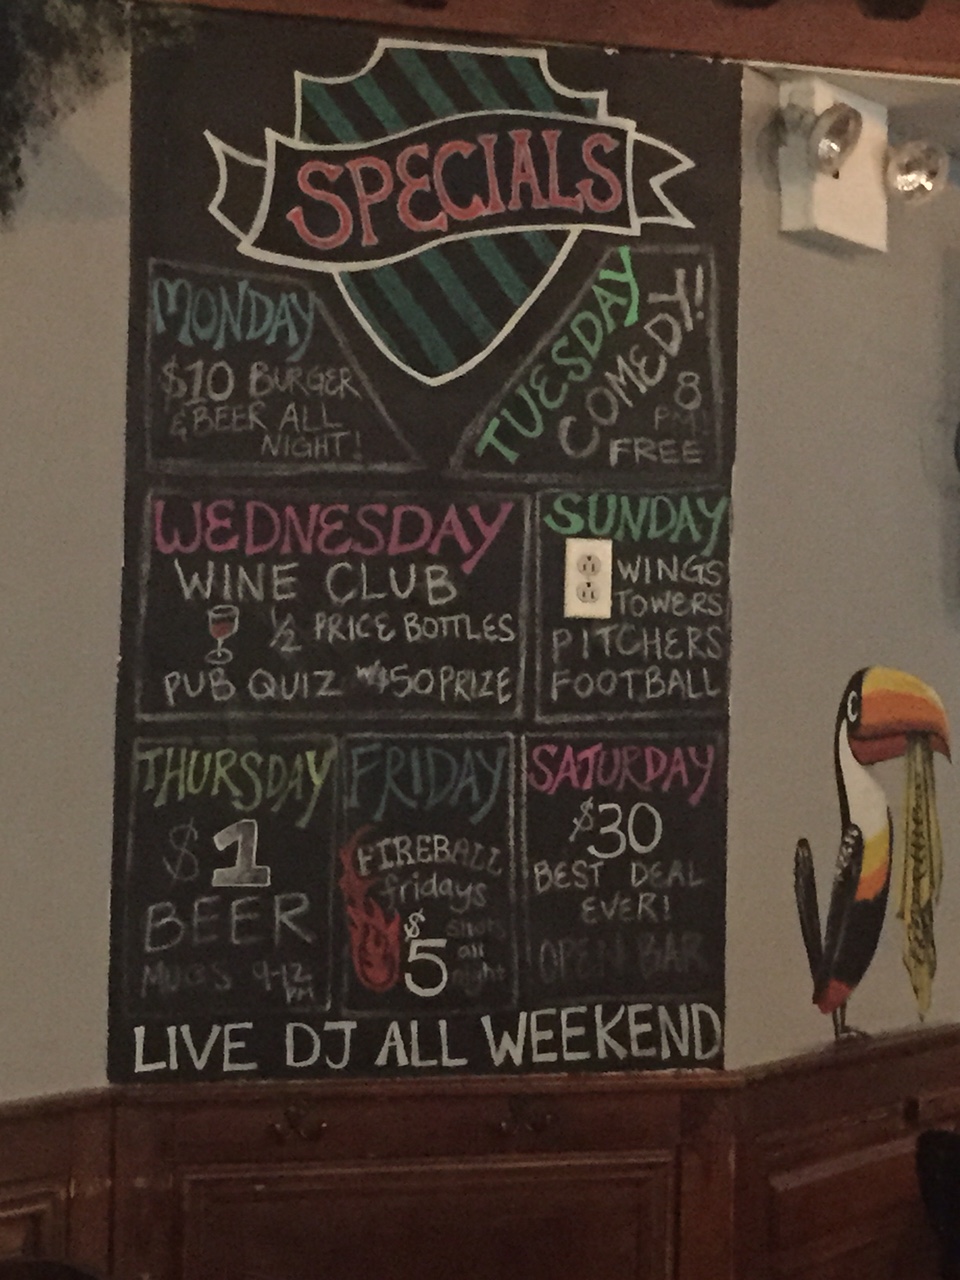 SPECIALS
MONDAY
$10 BURGER
& BEER ALL
NIGHT!
TUESDAY
COMEDY!
8
PM!
FREE
WEDNESDAY
WINE CLUB
1/2 PRICE BOTTLES
PUB QUIZ W/$50 PRIZE
SUNDAY
WINGS
TOWERS
PITCHERS
FOOTBALL
THURSDAY
$1
BEER
MUGS 9-12
PM
FRIDAY
FIREBALL
fridays
$5 shots
all
night
SATURDAY
$30
BEST DEAL
EVER!
OPEN BAR
LIVE DJ ALL WEEKEND